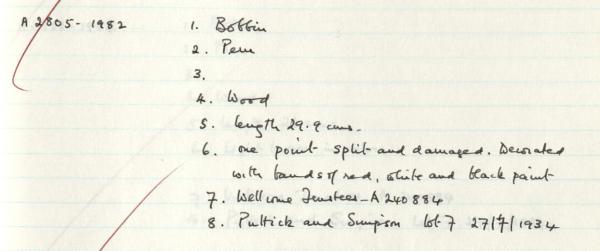 A 2805-1982 1. Bobbin
2. Peru
3.
4. Wood
5. length 29.9 cms.
6. one point split and damaged. Decorated
with bands of red, white and black paint
7. Wellcome Trustees - A 240884
8. Puttick and Simpson lot 7 27/7/1934